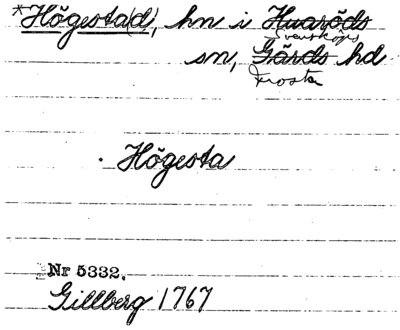 *Högesta(d), hn i Huaröds
Svensköps
sn, Gärds hd
Frosta
Högesta
Nr 5332.
Gillberg 1767